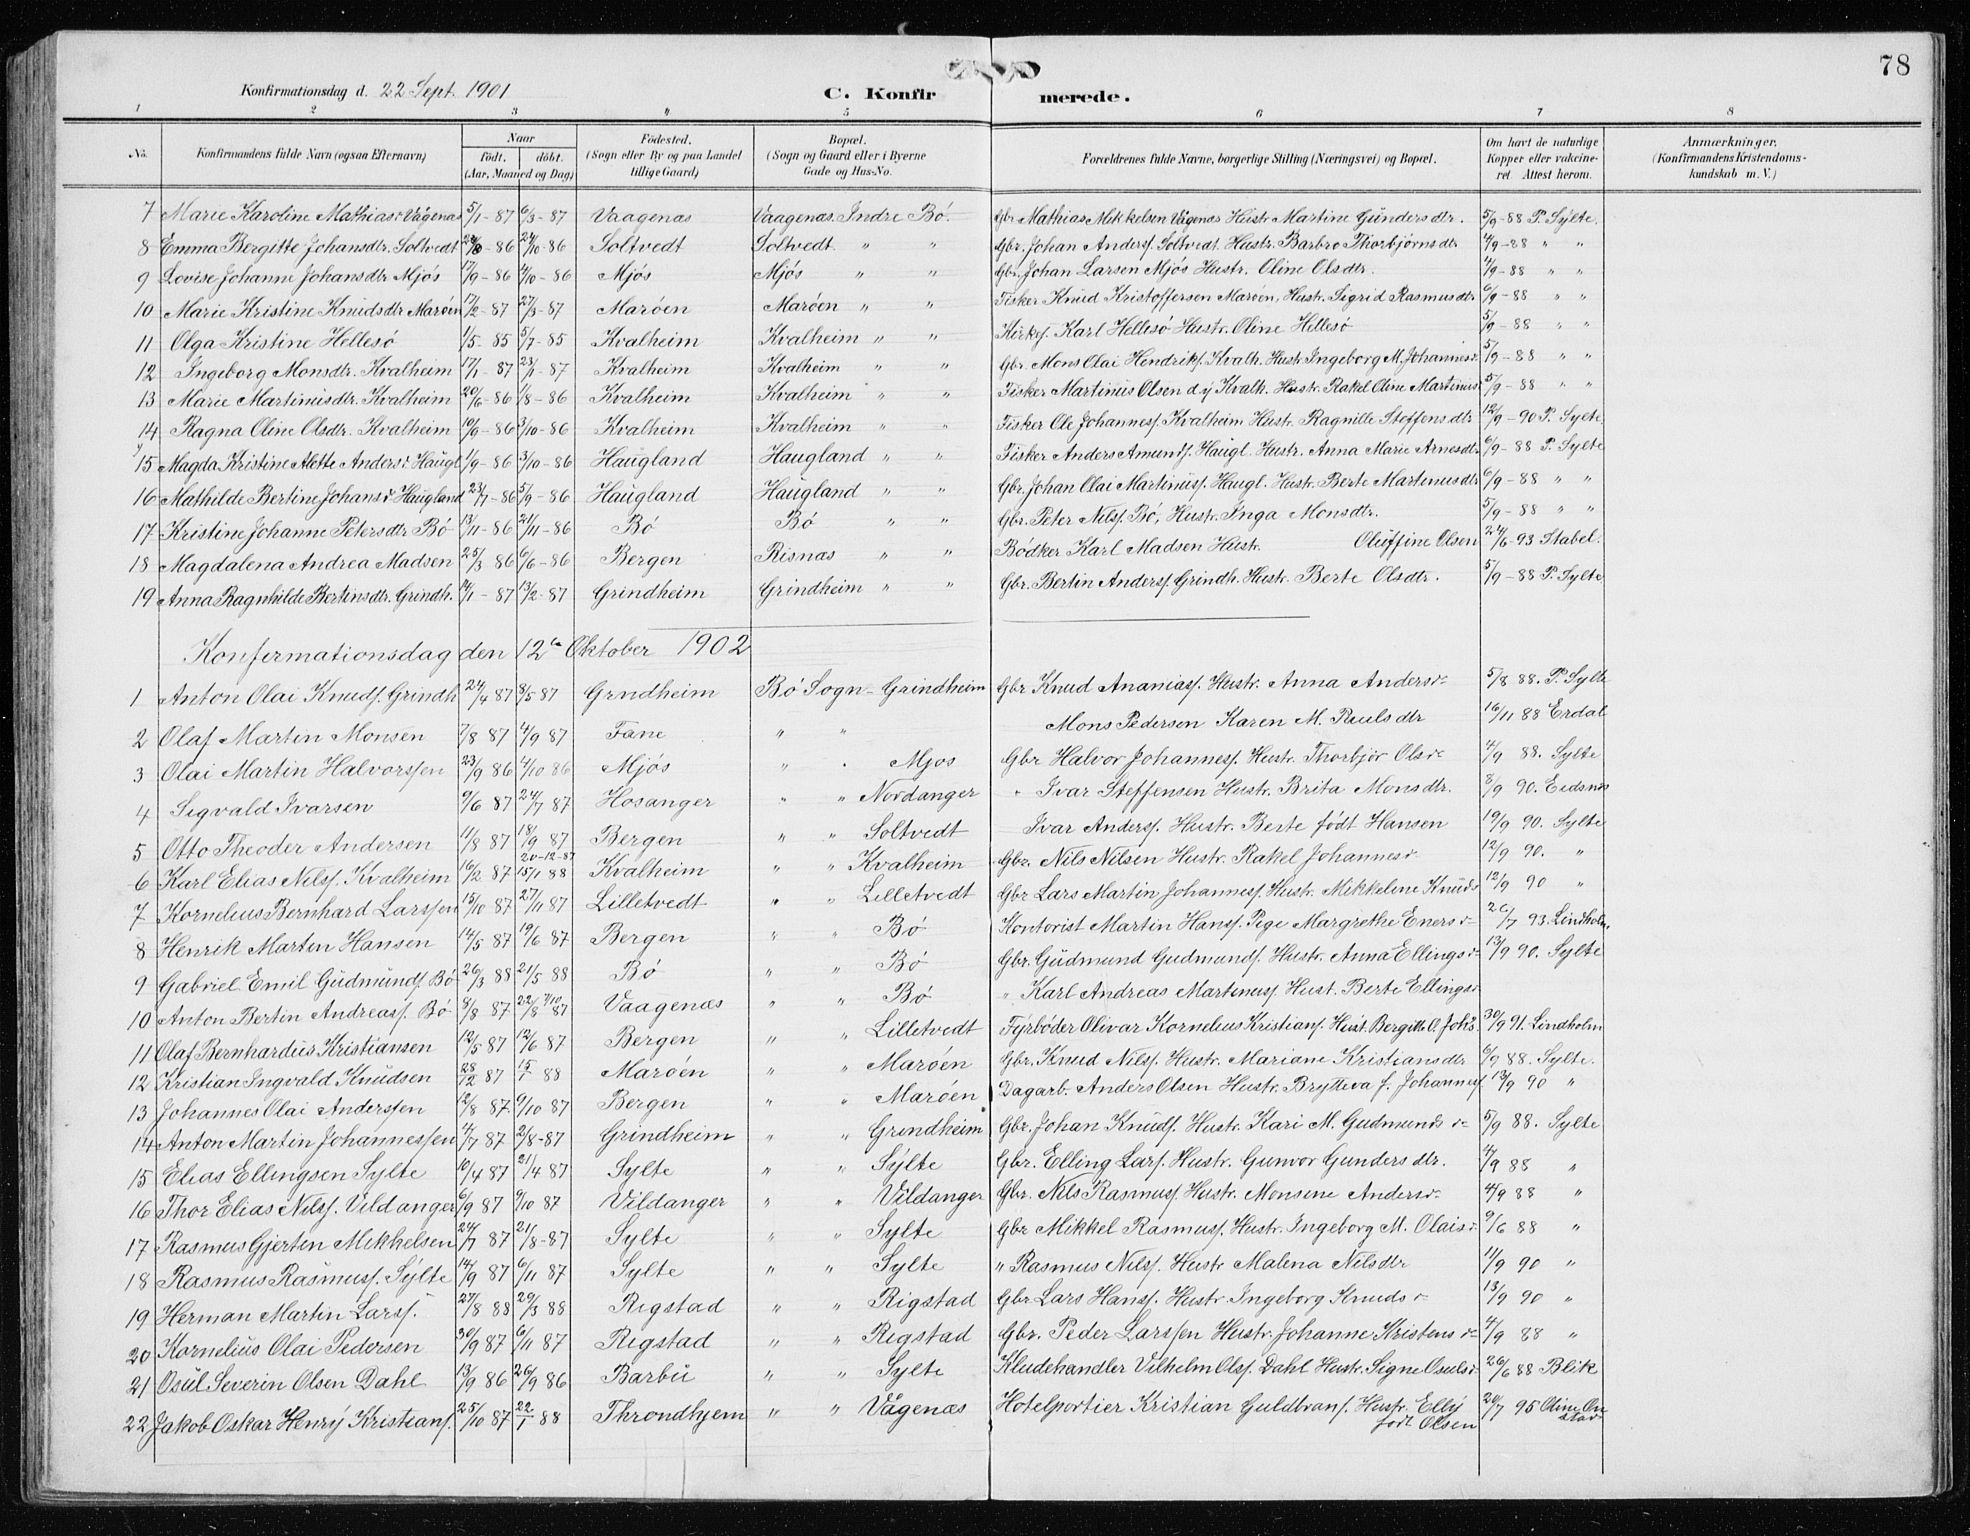 78
Konfirmationsdag d. 22 Sept. 1901 C. Konfir merede.
1 2 3 4 5 6 7 8
No. Konfirmandens fulde Navn (ogsaa Efternavn) Naar født. døbt. (Aar, Maaned og Dag) Fødested. (Sogn eller By og paa Landet tillige Gaard) Bopæl. (Sogn og Gaard eller i Byerne Gade og Hus-No. Forældrenes fulde Navne, borgerlige Stilling (Næringsvei) og Bopæl. Om havt de naturlige Kopper eller vakcineret. Attest herom. Anmærkninger. (Konfirmandens Kristendomskundskab m. V.)
7 Marie Karoline Mathiasdr Vågenæs 5/1-87 6/3-87 Vaagenæs Vaagenæs. Indre Bö. Gbr. Mathias Mikkelsen Vågenæs Hustr Martine Gundersdtr. 5/9-88 P. Sylte.
8 Emma Bergitte Johansdtr. Soltvedt 86 24/10-86 Soltvedt Soltvedt. " " Gbr. Johan Anders. Soltvedt. Hustr. Barbro Thorbjörnsdtr 4/9-88 " "
9 Lovise Johanne Johansdtr Mjös 17/9-86 4/10-86 Mjös Mjös " " Gbr. Johan Larsen Mjös Hustr. Oline Olsdtr. 4/9-88 " "
10 Marie Kristine Knudsdtr Maröen 17/2-87 27/3-87 Maröen Maröen " " Fisker Knud Kristoffersen Maröen, Hustr. Sigrid Rasmusdtr 6/9-88 " "
11 Olga Kristine Hellesö 1/5-85 5/7-85 Kvalheim Kvalheim " " Kirkes. Karl Hellesö Hustr. Oline Hellesö 5/9-88 " "
12 Ingeborg Monsdtr. Kvalheim 17/1-87 23/1-87 Kvalheim Kvalheim " " Gbr. Mons Olai Hendriks. Kvalh. Hustr. Ingeborg M. Johannesdr. 5/9-88 " "
13 Marie Martinusdtr. Kvalheim 20/6-86 1/8-86 Kvalheim Kvalheim " " Fisker Martinus Olsen d.y Kvalh. Hustr. Rakel Oline Martinus 5/9-88 " "
14 Ragna Oline Olsdtr. Kvalheim 10/9-86 3/10-86 Kvalheim Kvalheim " " Fisker Ole Johanness. Kvalheim Hustr. Ragnille Steffensdtr 12/9-90 P. Sylte
15 Magda Kristine Alette Andersdr Haugl. 1/9-86 3/10-86 Haugland Haugland " " Fisker Anders Amunds. Haugl. Hustr. Anna Marie Arnesdtr 6/9-88 P. Sylte
16 Mathilde Bertine Johansdr Haugland 23/7-86 5/9-86 Haugland Haugland " " Gbr. Johan Olai Martinuss. Haugl. Hustr. Berte Martinusdtr 6/9-88 " "
17 Kristine Johanne Petersdtr Bö 13/11-86 21/11-86 Bö Bö " " Gbr. Peter Nils. Bö, Hustr. Inga Monsdtr. 5/9-88 " "
18 Magdalena Andrea Madsen 25/3 86 6/6-86 Bergen Risnæs " " Bödker Karl Madsen Hustr. Oluffine Olsen 24/6-93 Stabel.
19 Anna Ragnhilde Bertinsdtr. Grindh. 14/1-87 13/2-87 Grindheim Grindheim " " Gbr. Bertin Anders. Grindh. Hustr. Berte Olsdtr. 5/9-88 P. Sylte
Konfermationsdag den 12te Oktober 1902
1 Anton Olai Knuds. Grindh 24/4 87 8/5 87 Grndheim Bö Sogn - Grindheim Gbr Knud Ananias. Hustr. Anna Andersdr 5/8 88. P. Sylte
2 Olaf Martin Monsen 7/8 87 4/9 87 Fane " " Mons Pedersen Karen M. Paulsdtr 16/11 88 Erdal
3 Olai Martin Halvorssen 23/9 86 4/10 86 Mjös " . Mjos Gbr Halvor Johanness. Hustr. Thorbjör Olsdr 4/9 88. Sylte
4 Sigvald Ivarsen 9/6 87 24/7 87 Hosanger " " Nordanger " Ivar Steffensen Hustr. Brita Monsdtr. 8/9 90. Eidsnes
5 Otto Theoder Andersen 11/8 87 18/9 87 Bergen " " Soltvedt Ivar Anders. Hustr. Berte födt Hansen 19/9 90. Sylte
6 Karl Elias Nils. Kvalheim 16/2 87 20-12-87 15/1 88 Kvalheim " " Kvalheim Gbr. Nils Nilsen Hustr. Rakel Johannesdr 12/9 90. "
7 Kornelius Bernhard Larssen 15/10 87 27/11 87 Lilletvedt " " Lilletvedt Gbr Lars Martin Johanness. Hustr. Mikkeline Knudsdr 12/9 90 "
8 Henrik Marten Hansen 14/5 87 19/6 87 Bergen " " Bö Kontorist Martin Hans. Pige Margrethe Enersdr 26/7 93. Lindholm.
9 Gabriel Emil Gudmunds. Bö 26/3 88 21/5 88 Bö " " Bö Gbr. Gudmund Gudmunds. Hustr. Anna Ellingsdr 13/9 90. Sylte
10 Anton Bertin Andreas. Bö 8/8 87 22/8 7/10 87 Vaagenæs " " Bö " Karl Andreas Martinus. Hust. Berte Ellingsdr
11 Olaf Bernhardus Kristiansen 12/5 87 12/6 87 Bergen " " Lilletvedt Fyrböder Olivar Kornelius Kristians. Hust. Bergitte O. Johs. 30/9 91. Lindholm
12 Kristian Ingvald Knudsen 28/12 87 15/1 88 Maröen " " Maröen Gbr. Knud Nils. Hustr. Mariane Kristiansdtr 6/9 88. Sylte.
13 Johannes Olai Anderssen 12/8 87. 9/10 87 Bergen " " Maröen Dagarb. Anders Olsen Hustr. Brytteva f. Johannes 13/9 90 "
14 Anton Martin Johannessen 4/7 87 2/8-87 Grindheim " " Grendheim Gbr. Johan Knuds. Hustr. Kari M. Gudmundsdr 5/9 88. Sylte
15 Elias Ellingsen Sylte 10/4 87 21/4 87 Sylte " " Sylte Gbr. Elling Lars. Hustr. Gunvor Gundersdtr. 4/9 88 "
16 Thor Elias Nils. Vildanger 6/9 87 9/10 87 Vildanger " " Vildanger Gbr. Nils Rasmus. Hustr. Monsene Andersdr 4/9 88 "
17 Rasmus Gjerten Mikkelsen 24/7 87 21/8-87 Sylte " " Sylte Gbr Mikkel Rasmus. Hustr. Ingeborg M. Olaisdr 9/6 88 "
18 Rasmus Rasmus. Sylte 14/9 87 6/11 87 Sylte " " Sylte " Rasmus Nils. Hustr Malena Nilsdtr 11/9 90 "
19 Herman Martin Lars. 27/8 88 29/3 88 Rigstad " " Rigstad Gbr Lars Hans. Hustr Ingeborg Knudsdr 13/9 90 "
20 Kornelius Olai Pedersen 30/9 87 6/11 87 Rigstad " " Rigstad Gbr. Peder Larssen Hustr. Johanne Kristensdr 4/9 88 "
21 Osul Severin Olsen Dahl 13/9 86 26/9 86 Barbu " " Sylte Kludehandler Vilhelm Ols. Dahl Hustr. Signe Osulsdr 26/6 88 Blik
22 Jakob Oskar Henry Kristians. 25/10 87 22/1 88 Throndhjem " " Vågenæs Hotelportier Kristian Guldbrans. Hustr. Elly födt Olsen 20/7 95 Oline